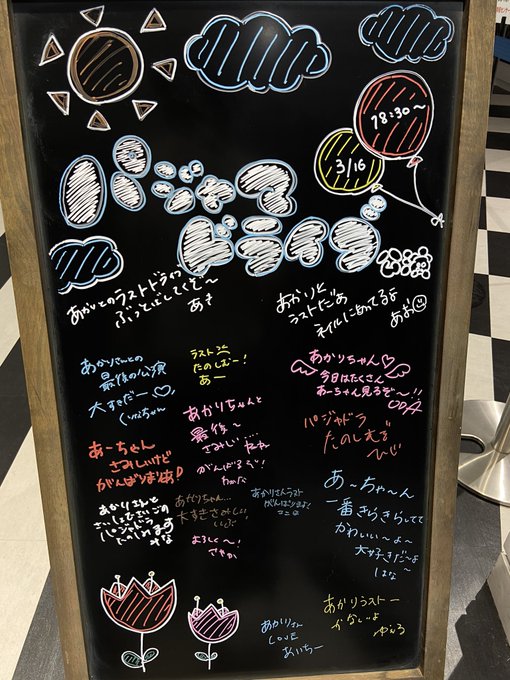 18:30～
3/16
パジャマ
ドライブ
あかりとのラストドライブ
ぶっとばしてくぞ～
あき
あかりと
ラストだぁ
あお
あかりさんとの
最後の公演
大すきだー♡
ラスト
たのしむー!
あー
あかりちゃん♡
今日はたくさん
あーちゃん見るぞ～!!
ODA
あかりちゃんと
最後～
さみしい....
がんばるぞ!
わかな
パジャドラ
たのしむぞ
ひじ
あーちゃん
さみしいけど
がんばりまりあ!
あかりさんと
さいしょでさいごの
パジャドラ
たのしみます
あかりちゃん...
大すきさみしい
くぅぶ
あかりさんラスト
がんばります!
よろしく～!
さやか
あ～ちゃ～ん
一番きらきらしてて
かわいい～よ～
大好きだ～よ
はな～
あかりさん
LOVE
あいちー
あかりラストー
かなしいよ
ゆんる